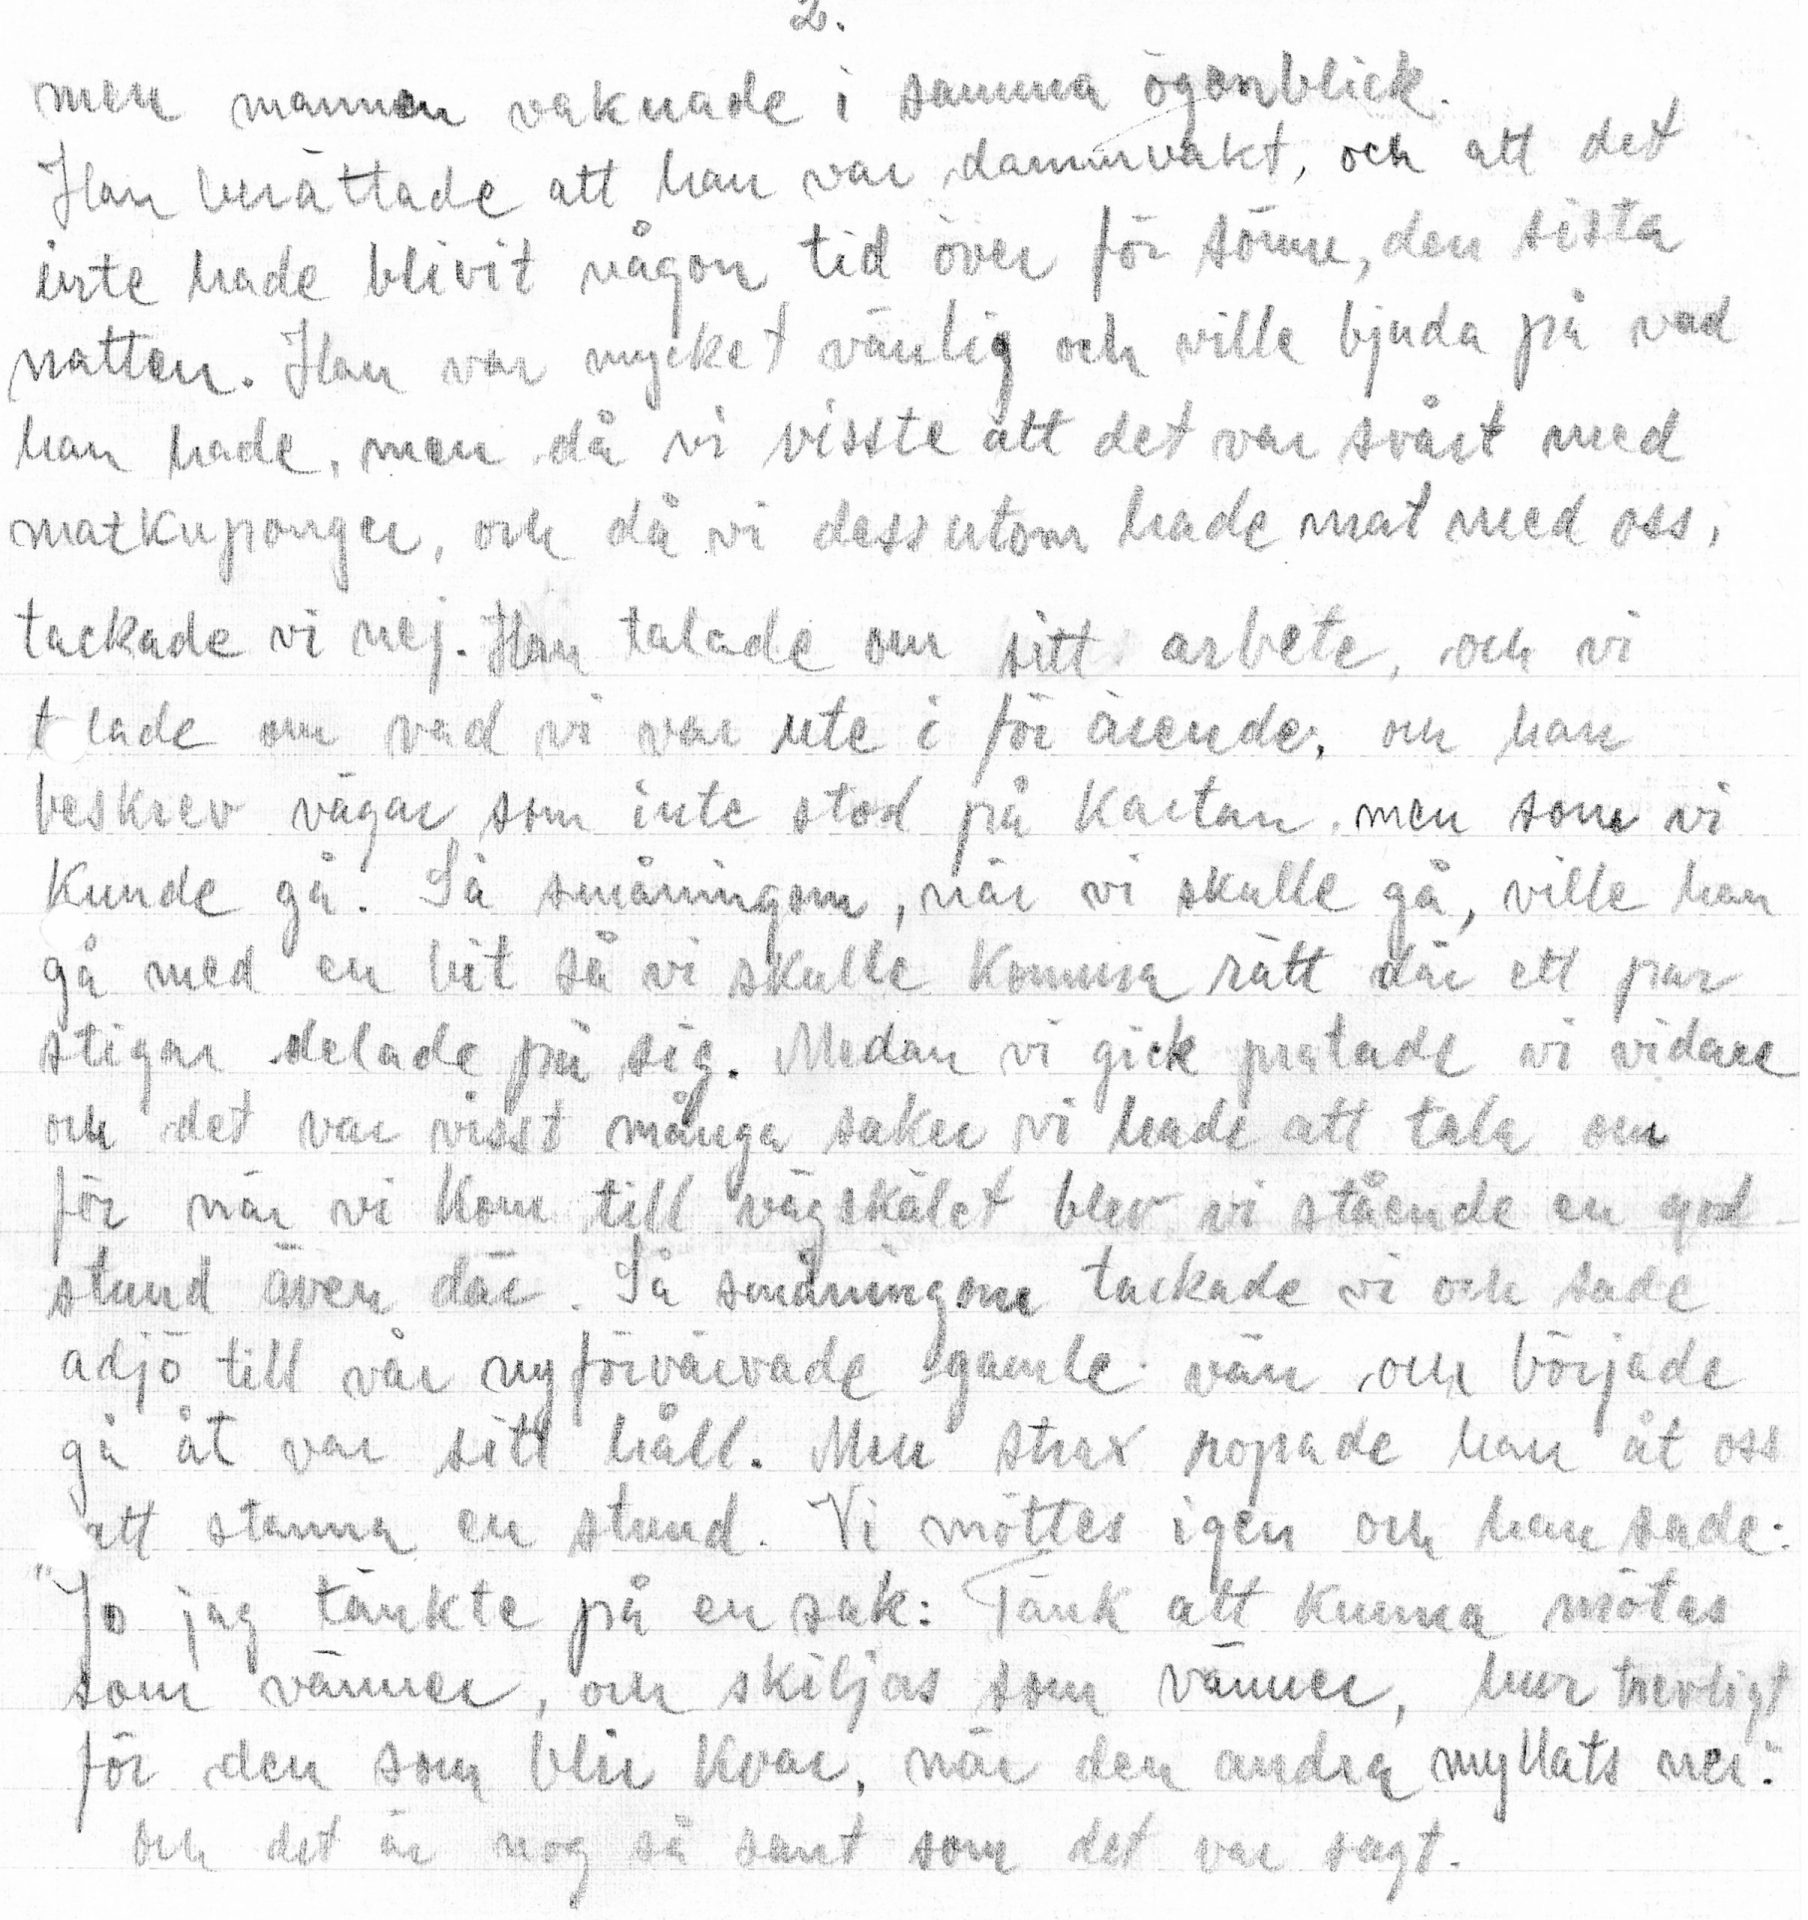 2.
men mannen vaknade i samma ögonblick.
Han berättade att han var dammvakt, och att det
inte hade blivit någon tid över för sömn, den sista
natten. Han var mycket vänlig och ville bjuda på vad
han hade, men då vi visste att det var svårt med
matkuponger, och då vi dessutom hade mat med oss,
tackade vi nej. Han talade om sitt arbete, och vi
t lade om vad vi var ute i för ärende, och han
beskrev vägar som inte stod på kartan, men som vi
kunde gå. Så småningom, när vi skulle gå, ville han
gå med en bit så vi skulle komma rätt där ett par
stigar delade på sig. Medan vi gick pratade vi vidare
och det var visst många saker vi hade att tala om
för när vi kom till vägskälet blev vi stående en god
stund även där. Så småningom tackade vi och sade
adjö till vår nyförvärvade gamle vän och började
gå åt var sitt håll. Men strax ropade han åt oss
att stanna en stund. Vi möttes igen och han sade:
"Jo jag tänkte på en sak: Tänk att kunna mötas
som vänner, och skiljas som vänner, hur trevligt
för den som blir kvar, när den andra myllats ner."
och det är nog så sant som det var sagt.